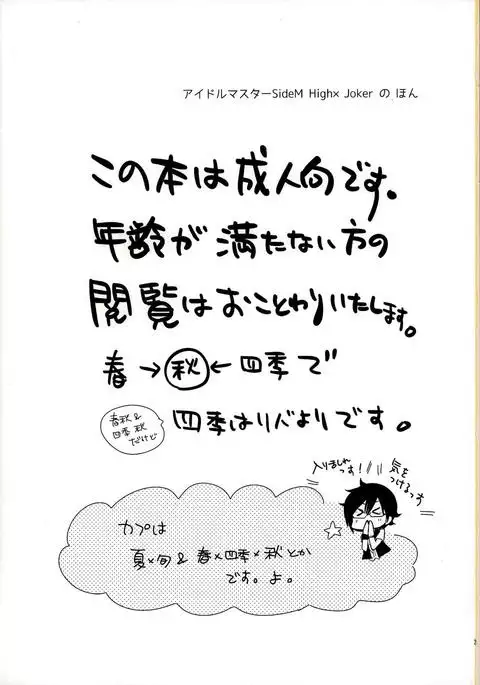 アイドルマスターSideM High× Joker の ほん
この本は成人向です。
年齢が満たない方の
閲覧はおことわりいたします。
春→秋←四季で
春秋&
四季秋
だけど
四季はリバよりです。
入りましれ
っす!
気を
つけるっす
カプは
夏×旬&春×四季×秋とか
です。よ。
2